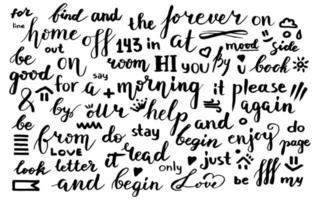 for find and the forever on
line home off 143 in at mood side
be out on room HI you By book
good say for a + morning it please
& by our help and again
be from do stay begin enjoy do
LOVE page
look letter it read only just
and begin Love be my